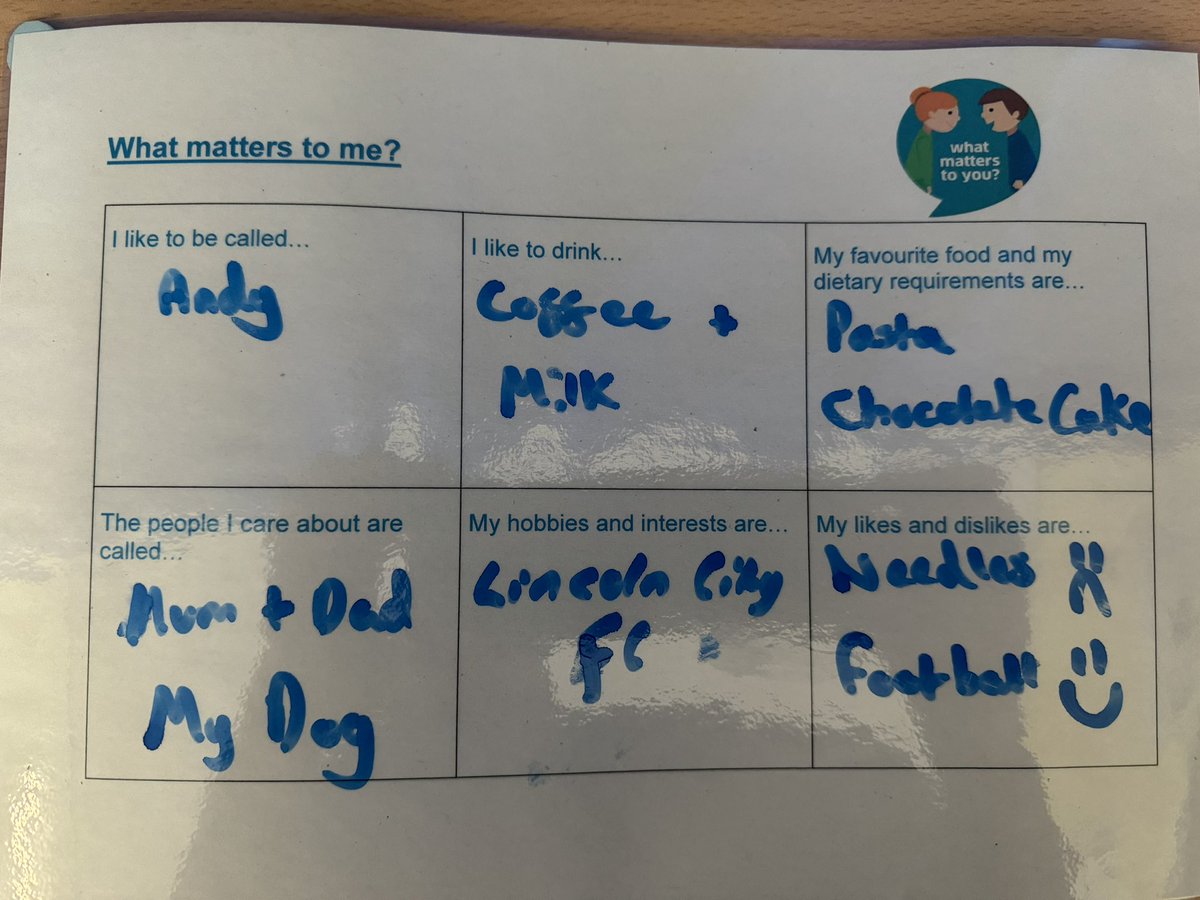 What matters to me?
what
matters
to you?
I like to be called…
Andy
I like to drink…
Coffee +
Milk
My favourite food and my
dietary requirements are…
Pasta
Chocolate Cake
The people I care about are
called…
Mum + Dad
My Dog
My hobbies and interests are…
Lincoln City
FC
My likes and dislikes are…
Needles
Football